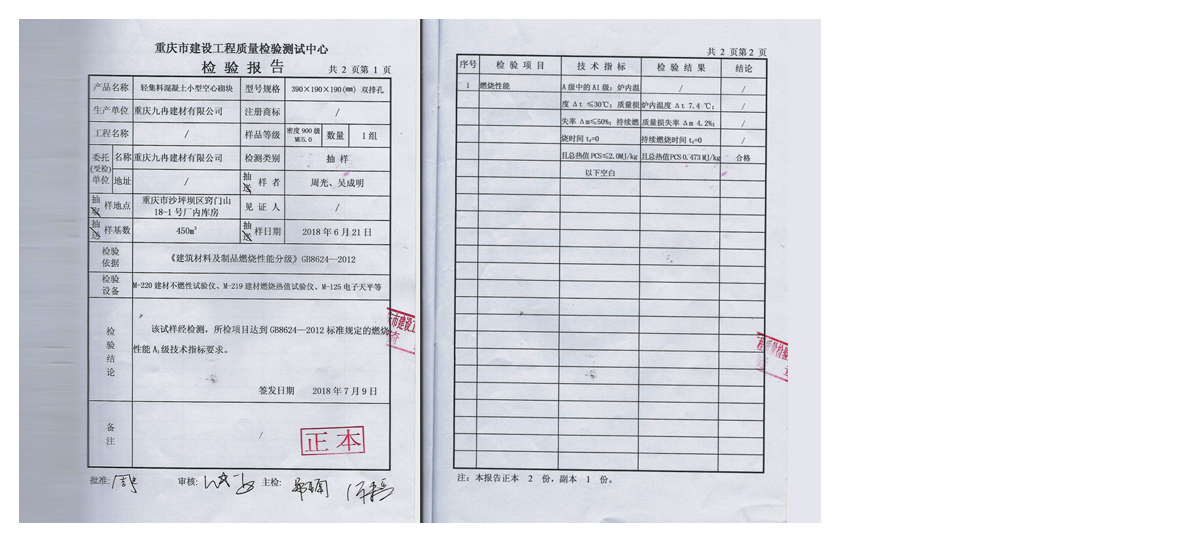 重庆市建设工程质量检验测试中心
检验报告
共 2 页第 1 页
产品名称 轻集料混凝土小型空心砌块 型号规格 390×190×190(㎜) 双排孔
生产单位 重庆九冉建材有限公司 注册商标 /
工程名称 / 样品等级 密度 900 级 MU5.0 数量 1 组
委托(受检)单位 名称 重庆九冉建材有限公司 检测类别 抽 样
地址 / 抽送 样 者 周光、吴成明
抽取 样地点 重庆市沙坪坝区窍门山 18-1 号厂内库房 见 证 人 /
抽送 样基数 450m³ 抽送 样日期 2018 年 6 月 21 日
检验依据 《建筑材料及制品燃烧性能分级》GB8624—2012
检验设备 M-220 建材不燃性试验仪、M-219 建材燃烧热值试验仪、M-125 电子天平等
检验结论
该试样经检测，所检项目达到 GB8624—2012 标准规定的燃烧
性能 A₁级技术指标要求。
签发日期 2018 年 7 月 9 日
备注 /
正本
批准: 审核: 主检:
共 2 页第 2 页
序号 检 验 项 目 技 术 指 标 检 验 结 果 结论
1 燃烧性能 A 级中的 A1 级：炉内温 / /
度 Δt ≤30℃；质量损 炉内温度 Δt 7.4 ℃； /
失率 Δm≤50%；持续燃 质量损失率 Δm 4.2%； /
烧时间 tf=0 持续燃烧时间 tf=0 /
且总热值 PCS≤2.0MJ/kg 且总热值 PCS 0.473 MJ/kg 合格
以下空白
注：本报告正本 2 份，副本 1 份。